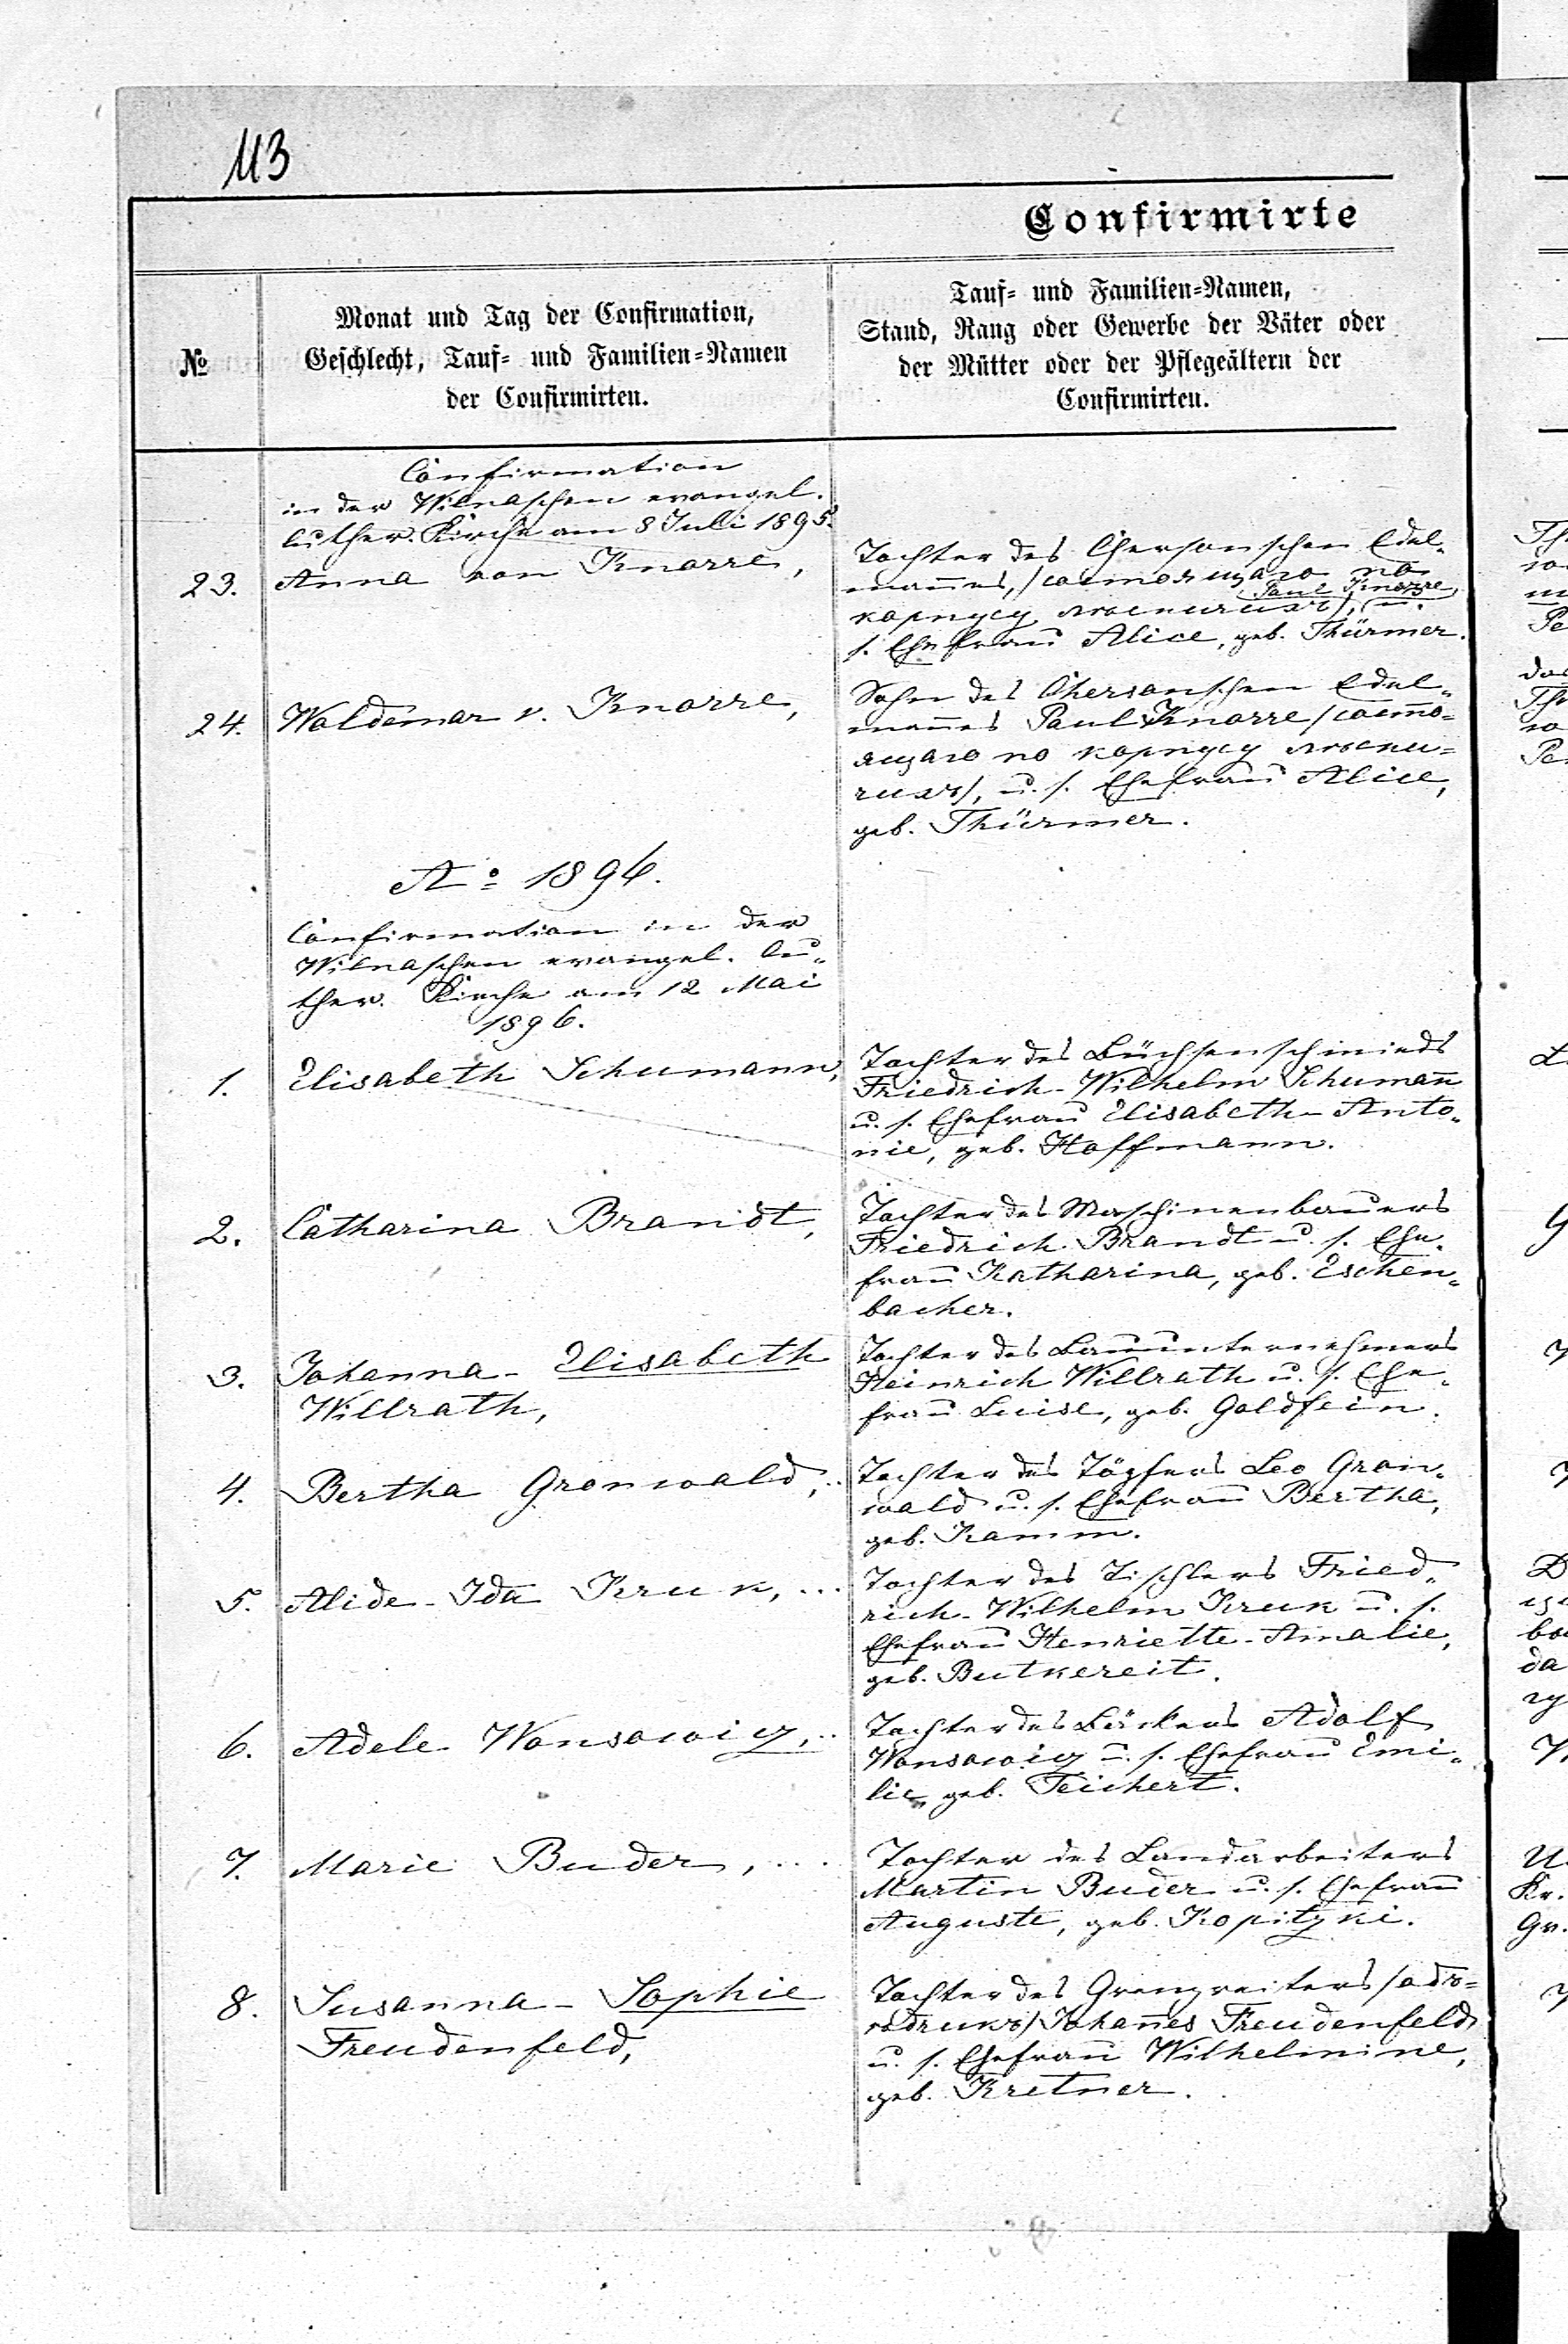 113
Confirmirte
№
Monat und Tag der Confirmation,
Geschlecht, Tauf- und Familien-Namen
der Confirmirten.
Tauf- und Familien-Namen,
Stand, Rang oder Gewerbe der Väter oder
der Mütter oder der Pflegeältern der
Confirmirten.
Confirmation
in der Wilnaschen evangel.
luther. Kirche am 8 Juli 1895.
23.
Anna von Knorre,
Tochter des Chersonschen Edel-
mannes, /состоящаго по
Paul Knorre,
корпусу лѣсничихъ/, u.
s. Ehefrau Alice, geb. Thürmer.
24.
Woldemar v. Knorre,
Sohn des Chersonschen Edel-
mannes Paul Knorre /состо-
ящаго по корпусу лѣсни-
чихъ/, u. s. Ehefrau Alice,
geb. Thürmer.
Ao 1896.
Confirmation in der
Wilnaschen evangel. lu-
ther. Kirche am 12 Mai
1896.
1.
Elisabeth Schumann,
Tochter des Büchsenschmieds
Friedrich-Wilhelm Schumann
u. s. Ehefrau Elisabeth-Anto-
nie, geb. Hoffmann.
2.
Catharina Brandt,
Tochter des Maschinenbauers
Friedrich Brandt u. s. Ehe-
frau Katharina, geb. Eschen-
bacher.
3.
Johanna-Elisabeth
Willrath,
Tochter des Bauunternehmers
Heinrich Willrath u. s. Ehe-
frau Luise, geb. Goldfein.
4.
Bertha Gronwald,..
Tochter des Töpfers Leo Gron-
wald u. s. Ehefrau Bertha,
geb. Kamm.
5.
Alide-Ida Kruk, ...
Tochter des Tischlers Fried-
rich-Wilhelm Kruk u. s.
Ehefrau Henriette-Amalie,
geb. Butkereit.
6.
Adele Wonsowicz,..
Tochter des Bäckers Adolf
Wonsowicz u. s. Ehefrau Emi-
lie, geb. Teichert.
7.
Marie Buder, ...
Tochter des Landarbeiters
Martin Buder u. s. Ehefrau
Auguste, geb. Kopitzki.
8.
Susanna-Sophie
Freudenfeld,
Tochter des Grenzreiters /объ-
ѣздчикъ/ Johannes Freudenfeld
u. s. Ehefrau Wilhelmine,
geb. Kretner.